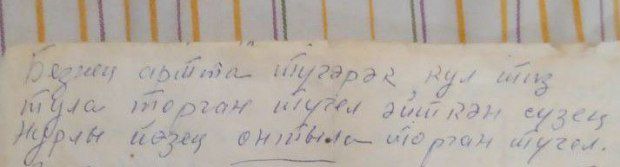 Безнең артта түгәрәк күл тиз
тула торган түгел әйткән сүзең
Нурлы йөзең онтыла торган түгел.